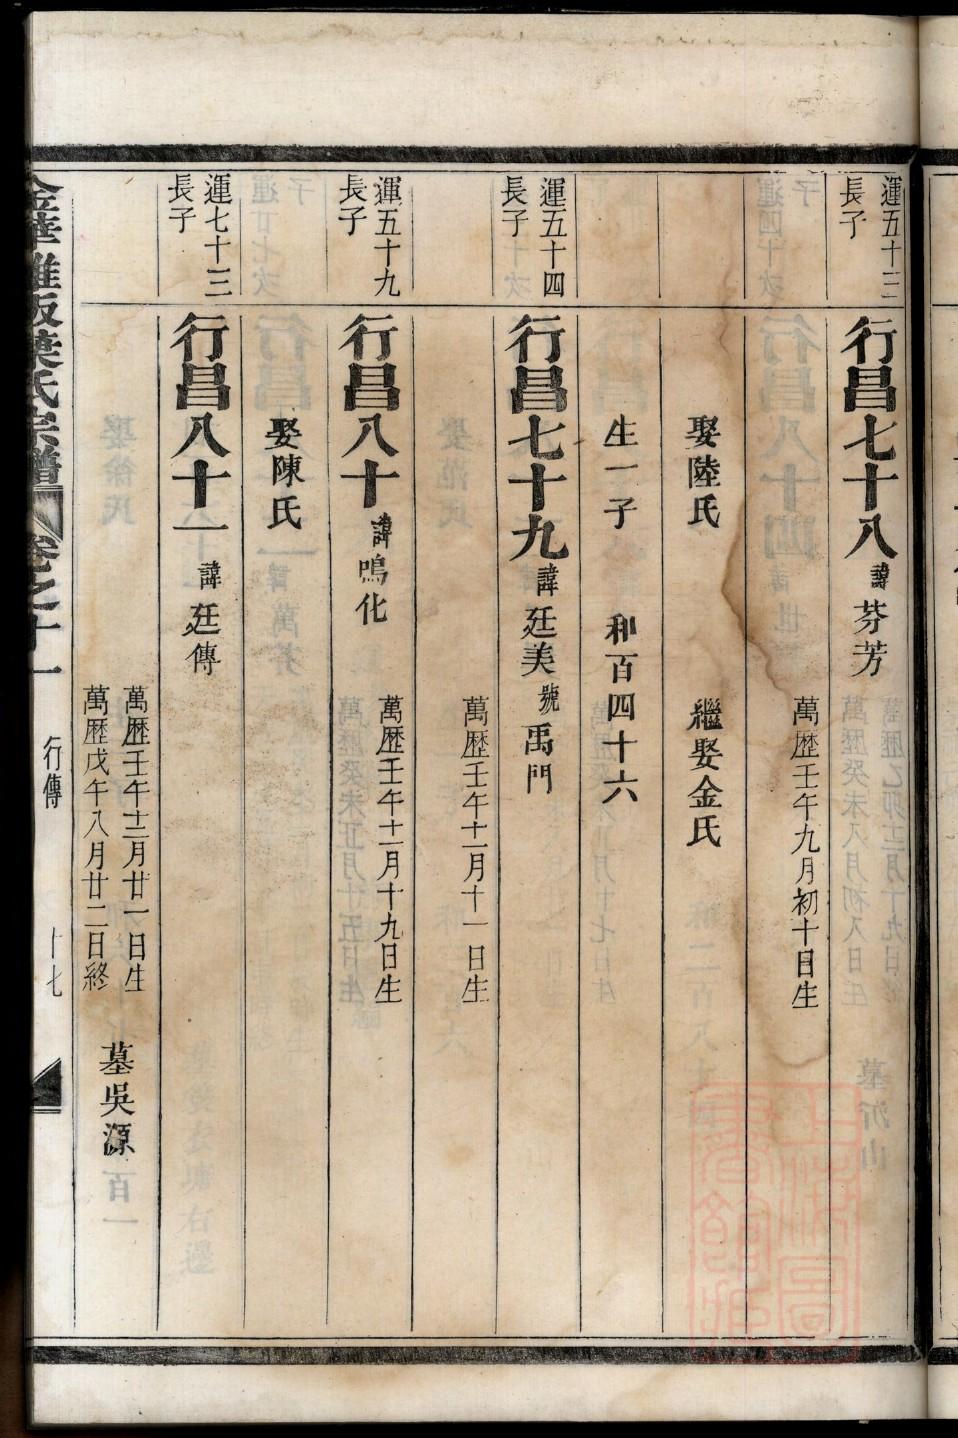 運五十三
長子
行昌七十八 諱芬芳
萬歷壬午九月初十日生
娶陸氏 繼娶金氏
生一子 和百四十六
運五十四
長子
行昌七十九 諱廷美 號禹門
萬歷壬午十一月十一日生
運五十九
長子
行昌八十 諱鳴化
萬歷壬午十一月十九日生
娶陳氏
運七十三
長子
行昌八十一 諱廷傳
萬歷壬午十二月廿一日生
萬歷戊午八月廿二日終
墓吳源
葉氏宗譜 卷之十一 行傳 十七
上海圖書館藏